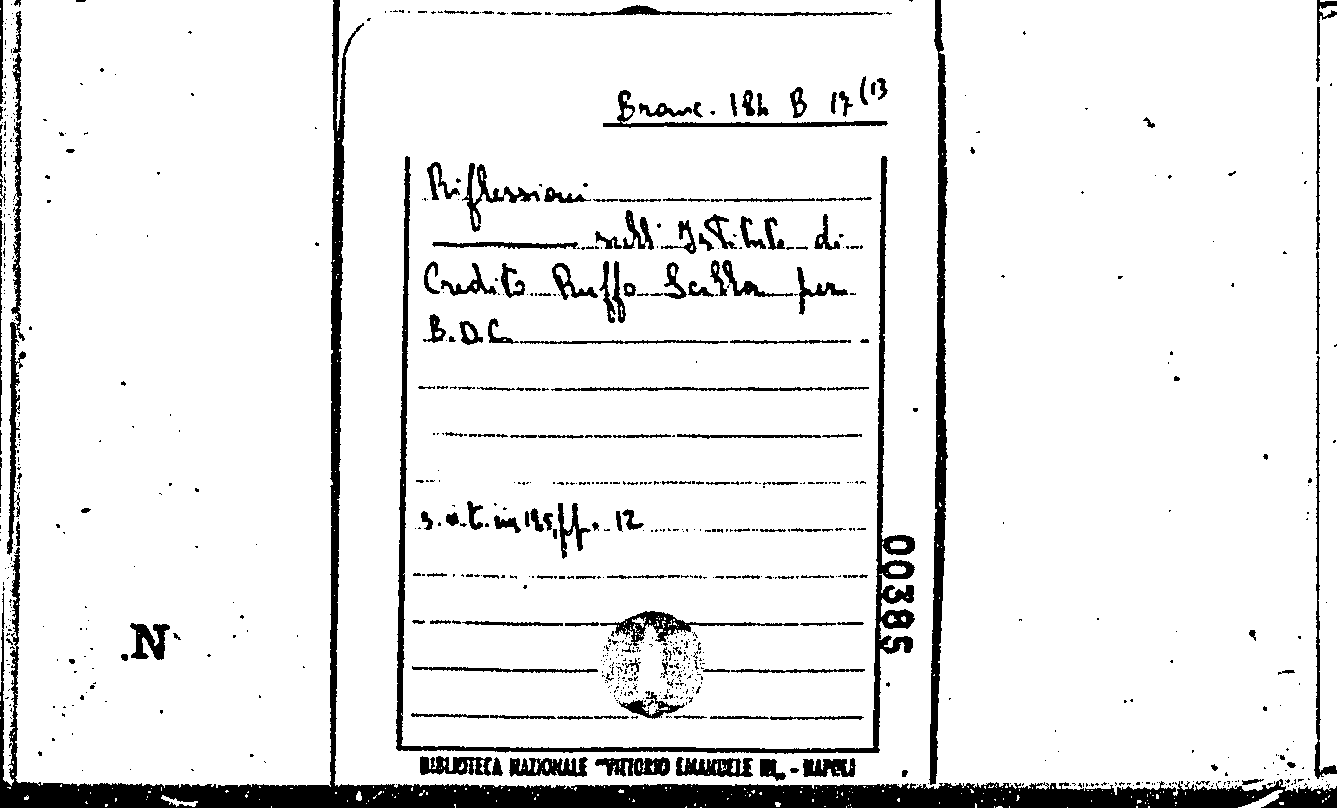 Branc. 184 B 17(13
Riflessioni
sull' Istituto di
Credito Ruffo Scilla per
B.D.C.
in pp. 12
00385
N
BIBLIOTECA NAZIONALE "VITTORIO EMANUELE III" - NAPOLI